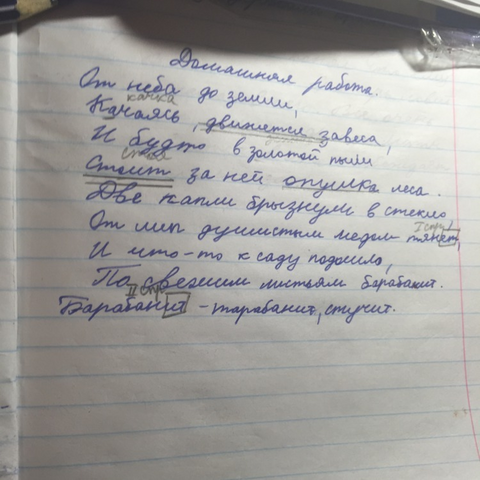 Домашняя работа.
От неба до земли,
качка
Качаясь, движется завеса,
И будто в золотой пыли
Стоит за ней опушка леса.
Две капли брызнули в стекло
I спр.
От лип душистым медом тянет,
И что-то к саду подошло,
По свежим листьям барабанит.
II спр.
Барабанит - тарабанит, стучит.